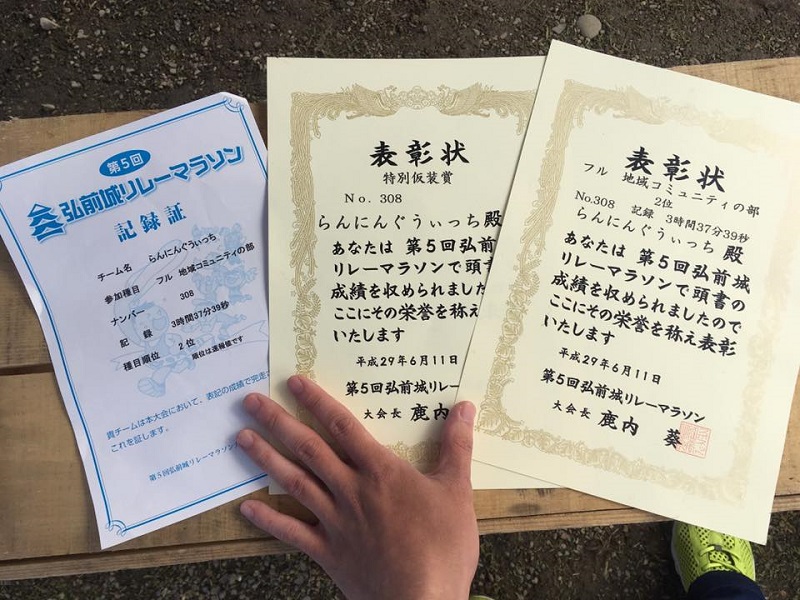 第5回
弘前城リレーマラソン
記録証
チーム名 らんにんぐうぃっち
参加種目 フル 地域コミュニティの部
ナンバー 308
記録 3時間37分39秒
種目順位 2位 順位は速報値です
貴チームは本大会において、表記の成績で完走
これを証します。
第5回弘前城リレーマラソン
表彰状
特別仮装賞
No. 308
らんにんぐうぃっち 殿
あなたは 第5回弘前
リレーマラソンで頭書
成績を収められました
ここにその栄誉を称え
いたします
平成29年6月11日
第5回弘前城リレー
大会長 鹿内
表彰状
フル 地域コミュニティの部
2位
No.308 記録 3時間37分39秒
らんにんぐうぃっち 殿
あなたは 第5回弘前城
リレーマラソンで頭書の
成績を収められましたので
ここにその栄誉を称え表彰
いたします
平成29年6月11日
第5回弘前城リレーマラソン
大会長 鹿内 葵